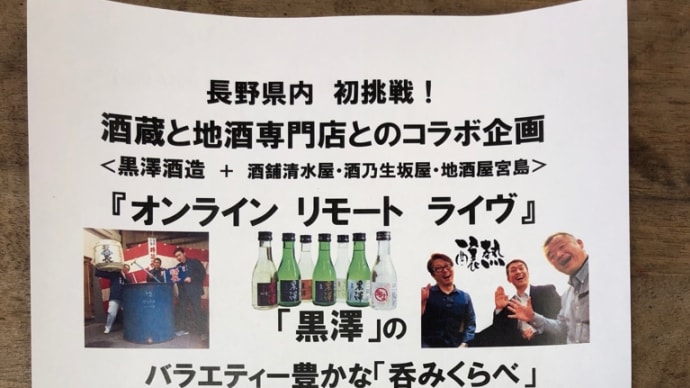 長野県内 初挑戦！
酒蔵と地酒専門店とのコラボ企画
＜黒澤酒造 ＋ 酒舗清水屋・酒乃生坂屋・地酒屋宮島＞
『オンライン リモート ライヴ』
黒澤
「黒澤」の
バラエティー豊かな「呑みくらべ」